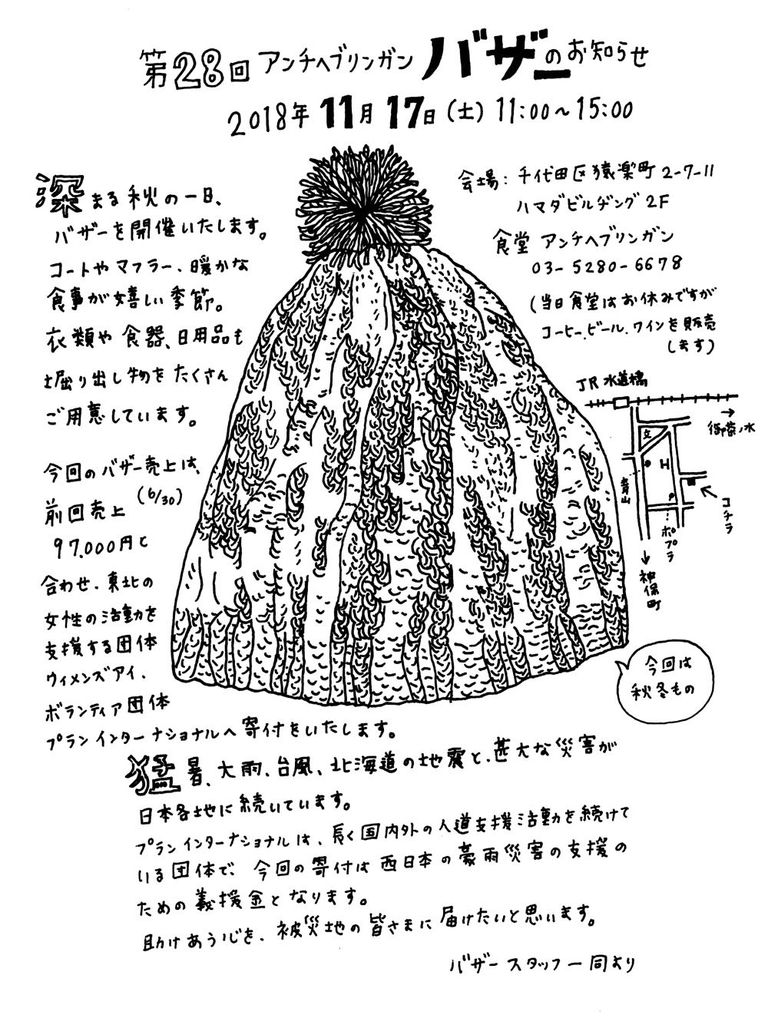 第28回 アンチヘブリンガン バザーのお知らせ
2018年 11月 17日 (土) 11:00〜15:00
会場: 千代田区猿楽町2-7-11
ハマダビルヂング 2F
食堂 アンチヘブリンガン
03-5280-6678
(当日食堂はお休みですが
コーヒー、ビール、ワインを販売
します)
深まる秋の一日、
バザーを開催いたします。
コートやマフラー、暖かな
食事が嬉しい季節。
衣類や食器、日用品も
堀り出し物をたくさん
ご用意しています。
今回のバザー売上は、
前回売上 (6/30)
97,000円と
合わせ、東北の
女性の活動を
支援する団体
ウィメンズアイ、
ボランティア団体
プランインターナショナルへ寄付をいたします。
JR 水道橋
御茶ノ水
文
H
青山
ポプラ
コチラ
神保町
今回は
秋冬もの
猛暑、大雨、台風、北海道の地震と、甚大な災害が
日本各地に続いています。
プランインターナショナルは、長く国内外の人道支援活動を続けて
いる団体で、今回の寄付は西日本の豪雨災害の支援の
ための義援金となります。
助けあう心を、被災地の皆さまに届けたいと思います。
バザースタッフ一同より